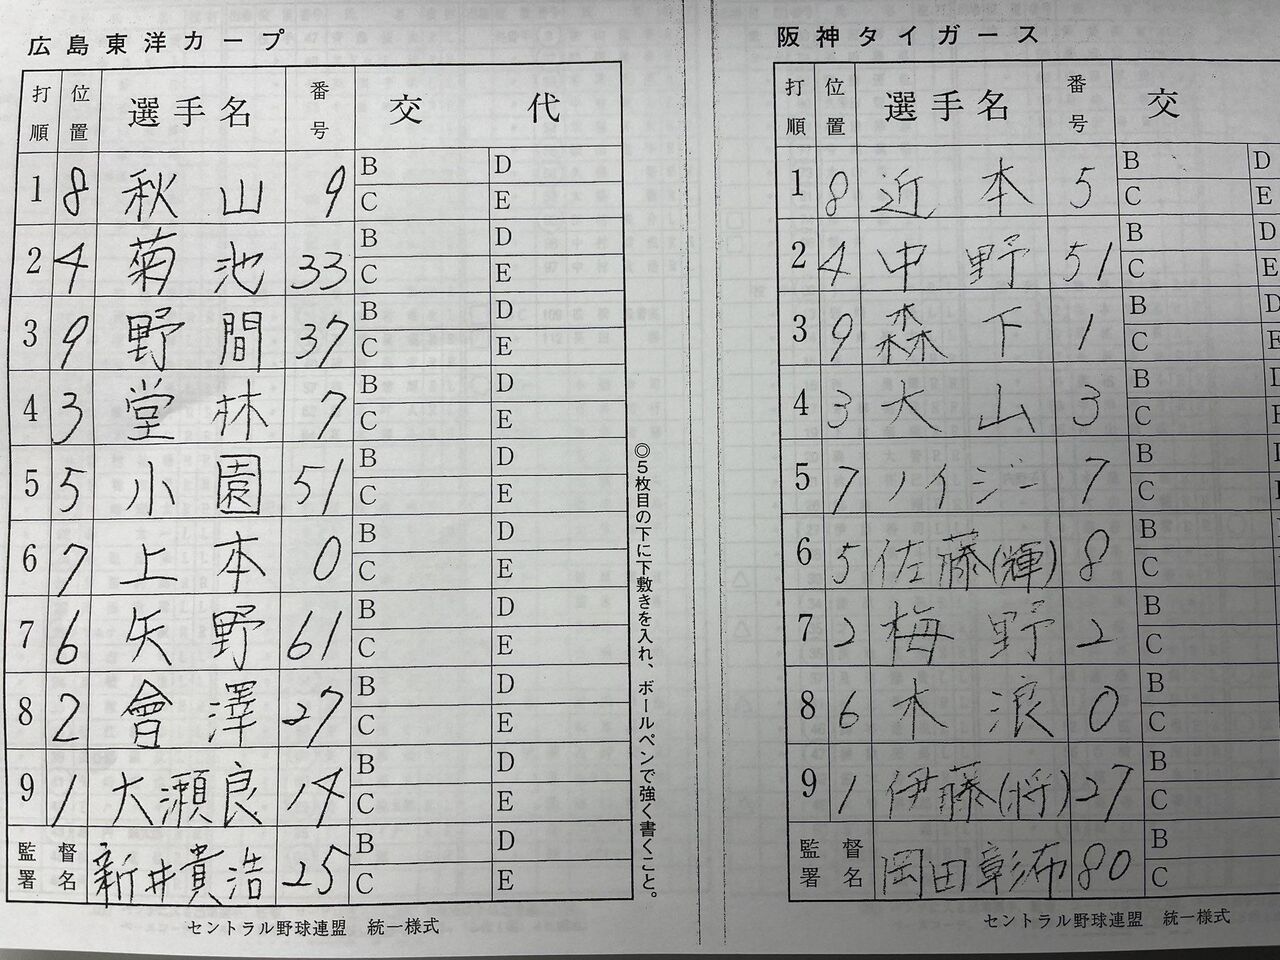 広島東洋カープ
打順 位置 選手名 番号 交代
1 8 秋山 9 B D C E
2 4 菊池 33 B D C E
3 9 野間 37 B D C E
4 3 堂林 7 B D C E
5 5 小園 51 B D C E
6 7 上本 0 B D C E
7 6 矢野 61 B D C E
8 2 會澤 27 B D C E
9 1 大瀬良 14 B D C E
監督署名 新井貴浩 25 B D C E
セントラル野球連盟 統一様式
◎5枚目の下に下敷きを入れ、ボールペンで強く書くこと。
阪神タイガース
打順 位置 選手名 番号 交
1 8 近本 5 B D C E
2 4 中野 51 B D C E
3 9 森下 1 B D C E
4 3 大山 3 B D C E
5 7 ノイジー 7 B C
6 5 佐藤(輝) 8 B C
7 2 梅野 2 B C
8 6 木浪 0 B C
9 1 伊藤(将) 27 B C
監督署名 岡田彰布 80 B C
セントラル野球連盟 統一様式